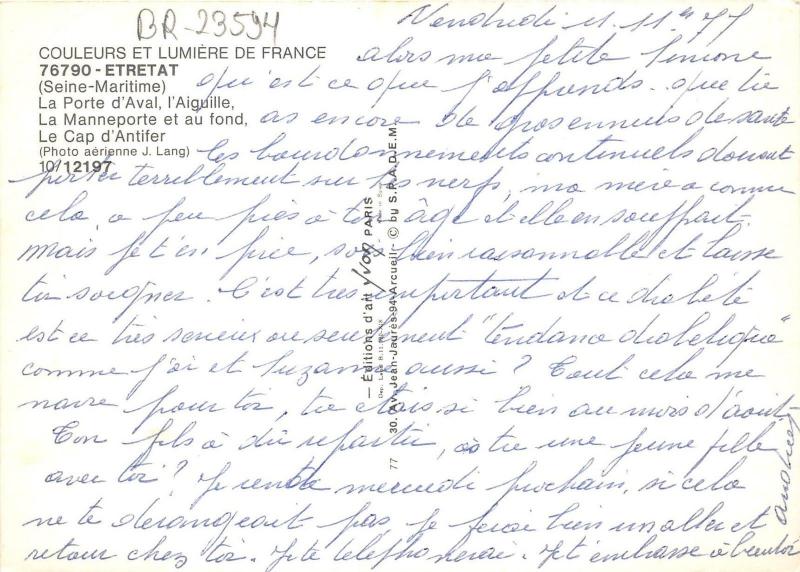 BR-23594
COULEURS ET LUMIÈRE DE FRANCE
76790 - ETRETAT
(Seine-Maritime)
La Porte d'Aval, l'Aiguille,
La Manneporte et au fond,
Le Cap d'Antifer
(Photo aérienne J. Lang)
10/12197
Vendredi 11.11 77
alors ma petite Simone
qu'est ce que j'apprends.. que tu
as encore de gros ennuis de santé
les bourdonnements continuels doivent
terriblement sur les nerfs, ma mère a connu
cela, a peu près à ton âge et elle en souffrait.
Mais je t'en prie, sois bien raisonnable et laisse
toi soigner. C'est très important et ce diabète
est ce très sérieux ou seulement "tendance diabétique"
comme j'ai et Suzanne aussi ? Tout cela me
navre pour toi, tu étais si bien au mois d'août.
Ton fils a dû repartir, as tu une jeune fille
avec toi ? Je rentre mercredi prochain, si cela
ne te dérangeait pas je ferai bien un aller et
retour chez toi. Je te téléphonerai. Je t'embrasse à bientôt
Andrée
— Editions d'art yvon PARIS
30, Av. Jean-Jaurès-94-Arcueil - © by S.P.A.D.E.M.
77